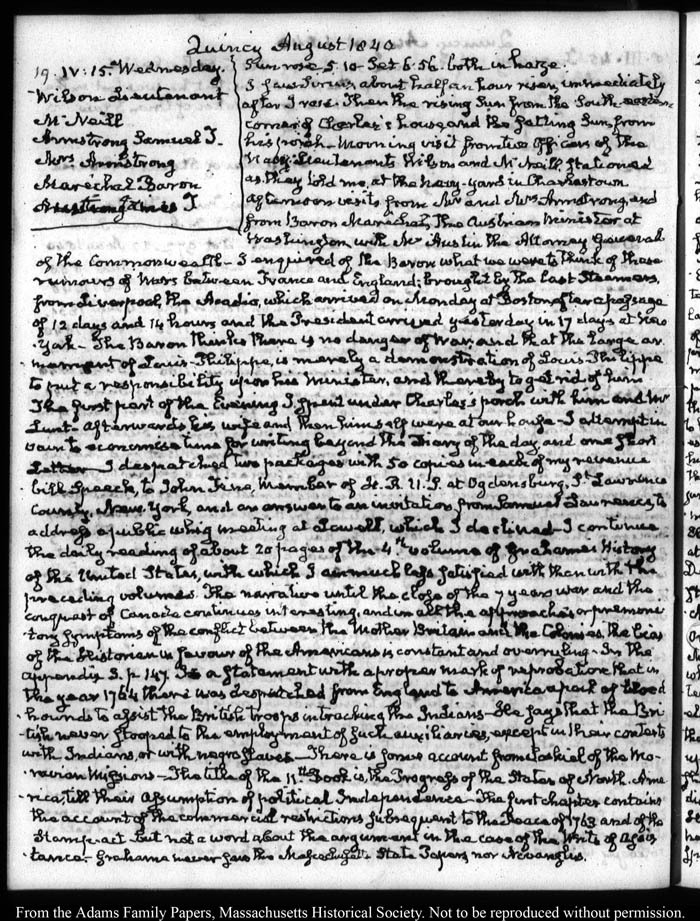 Quincy August 1840
19. IV: 15. Wednesday.
Wilson Lieutenant
McNeill
Armstrong Samuel T.
Mrs Armstrong
Marechal Baron
Austin James T
Sun rose 5. 10 Set 6. 56. both in haze.
I saw Sirius about half an hour risen, immediately
after I rose. Then the rising Sun from the South eastern
corner of Charles's house, and the setting Sun, from
his porch - Morning visit from two Officers of the
Navy; Lieutenants Wilson and McNeill, stationed
as they told me, at the Navy-yard in Charlestown
afternoon visits from Mr and Mrs Armstrong, and
from Baron Marechal, the Austrian Minister at
Washington, with Mr Austin the Attorney General
of the Commonwealth - I enquired of the Baron what we were to think of these
rumours of Wars between France and England; brought by the last Steamers,
from Liverpool, the Acadia, which arrived on Monday at Boston after a passage
of 12 days and 14 hours, and the President arrived yesterday in 17 days at New
York - The Baron thinks there is no danger of War, and that the large ar-
mament of Louis-Philippe, is merely a demonstration of Louis Philippe
to put a responsibility upon his Minister, and thereby to get rid of him
The first part of the Evening I spent under Charles's porch with him and Mr
Lunt - afterwards his wife and then himself were at our house - I attempt in
vain to economise time for writing beyond the Diary of the day, and one short
Letter - I despatched two packages with 50 copies in each of my revenue
bill Speech, to John Fine, Member of H. R. U. S. at Ogdensburg, St Lawrence
County, New York, and an answer to an invitation from Samuel Lawrence, to
address a public whig meeting at Lowell, which I declined. I continue
the daily reading of about 20 pages of the 4th volume of Grahame's History
of the United States, with which I am much less satisfied with than with the
preceding volumes. The narrative until the close of the 7 years war and the
conquest of Canada continues interesting, and in all the approaches or premoni-
tory symptoms of the conflict between the Mother Britain and the Colonies, the bias
of the Historian in favour of the Americans is constant and overruling - In the
appendix 3. p 147. Is a statement with a proper mark of reprobation that in
the year 1764 there was despatched from England to America a pack of blood
hounds to assist the British troops in tracking the Indians - He says that the Bri-
tish never stooped to the employment of such auxiliaries, except in their contests
with Indians, or with negro slaves - There is some account from Loskiel of the Mo-
ravian Missions - The title of the 11th Book is, the Progress of the States of North Ame
rica, till their assumption of political Independence - The first chapter contains
the account of the commercial restrictions subsequent to the Peace of 1763 and of the
Stamp-act but not a word about the argument in the case of the Writs of Assis
tance - Grahame never saw the Massachusetts State Papers nor Novanglus.
From the Adams Family Papers, Massachusetts Historical Society. Not to be reproduced without permission.